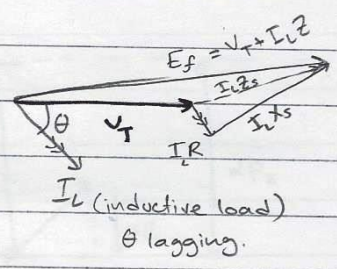 E_f = V_T + I_L Z
I_L Z_s
θ
V_T
I_L R
I_L X_s
I_L (inductive load)
θ lagging.